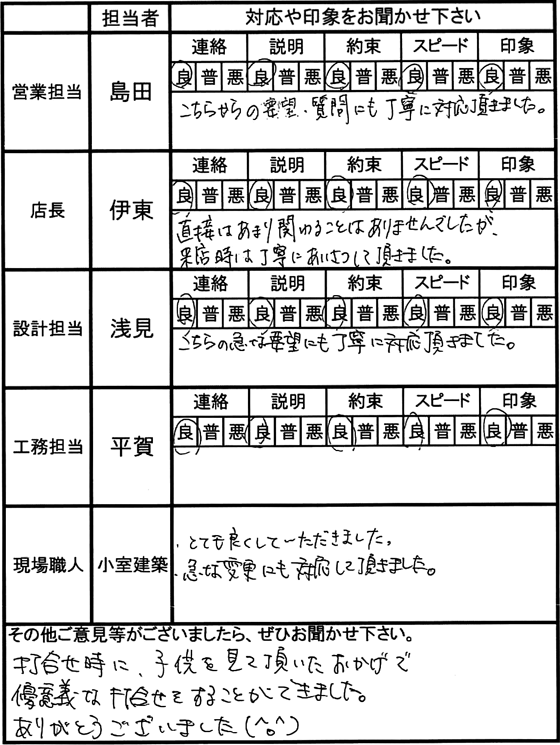 担当者 対応や印象をお聞かせ下さい
営業担当 島田
連絡 説明 約束 スピード 印象
良 普 悪 良 普 悪 良 普 悪 良 普 悪 良 普 悪
こちらからの要望、質問にも丁寧に対応頂きました。
店長 伊東
連絡 説明 約束 スピード 印象
良 普 悪 良 普 悪 良 普 悪 良 普 悪 良 普 悪
直接はあまり関わることはありませんでしたが、
来店時は丁寧にあいさつして頂きました。
設計担当 浅見
連絡 説明 約束 スピード 印象
良 普 悪 良 普 悪 良 普 悪 良 普 悪 良 普 悪
こちらの急な要望にも丁寧に対応頂きました。
工務担当 平賀
連絡 説明 約束 スピード 印象
良 普 悪 良 普 悪 良 普 悪 良 普 悪 良 普 悪
現場職人 小室建築
・とても良くしていただきました。
・急な変更にも対応して頂きました。
その他ご意見等がございましたら、ぜひお聞かせ下さい。
打合せ時に、子供を見て頂いたおかげで
優意義な打合せをすることができました。
ありがとうございました(^o^)